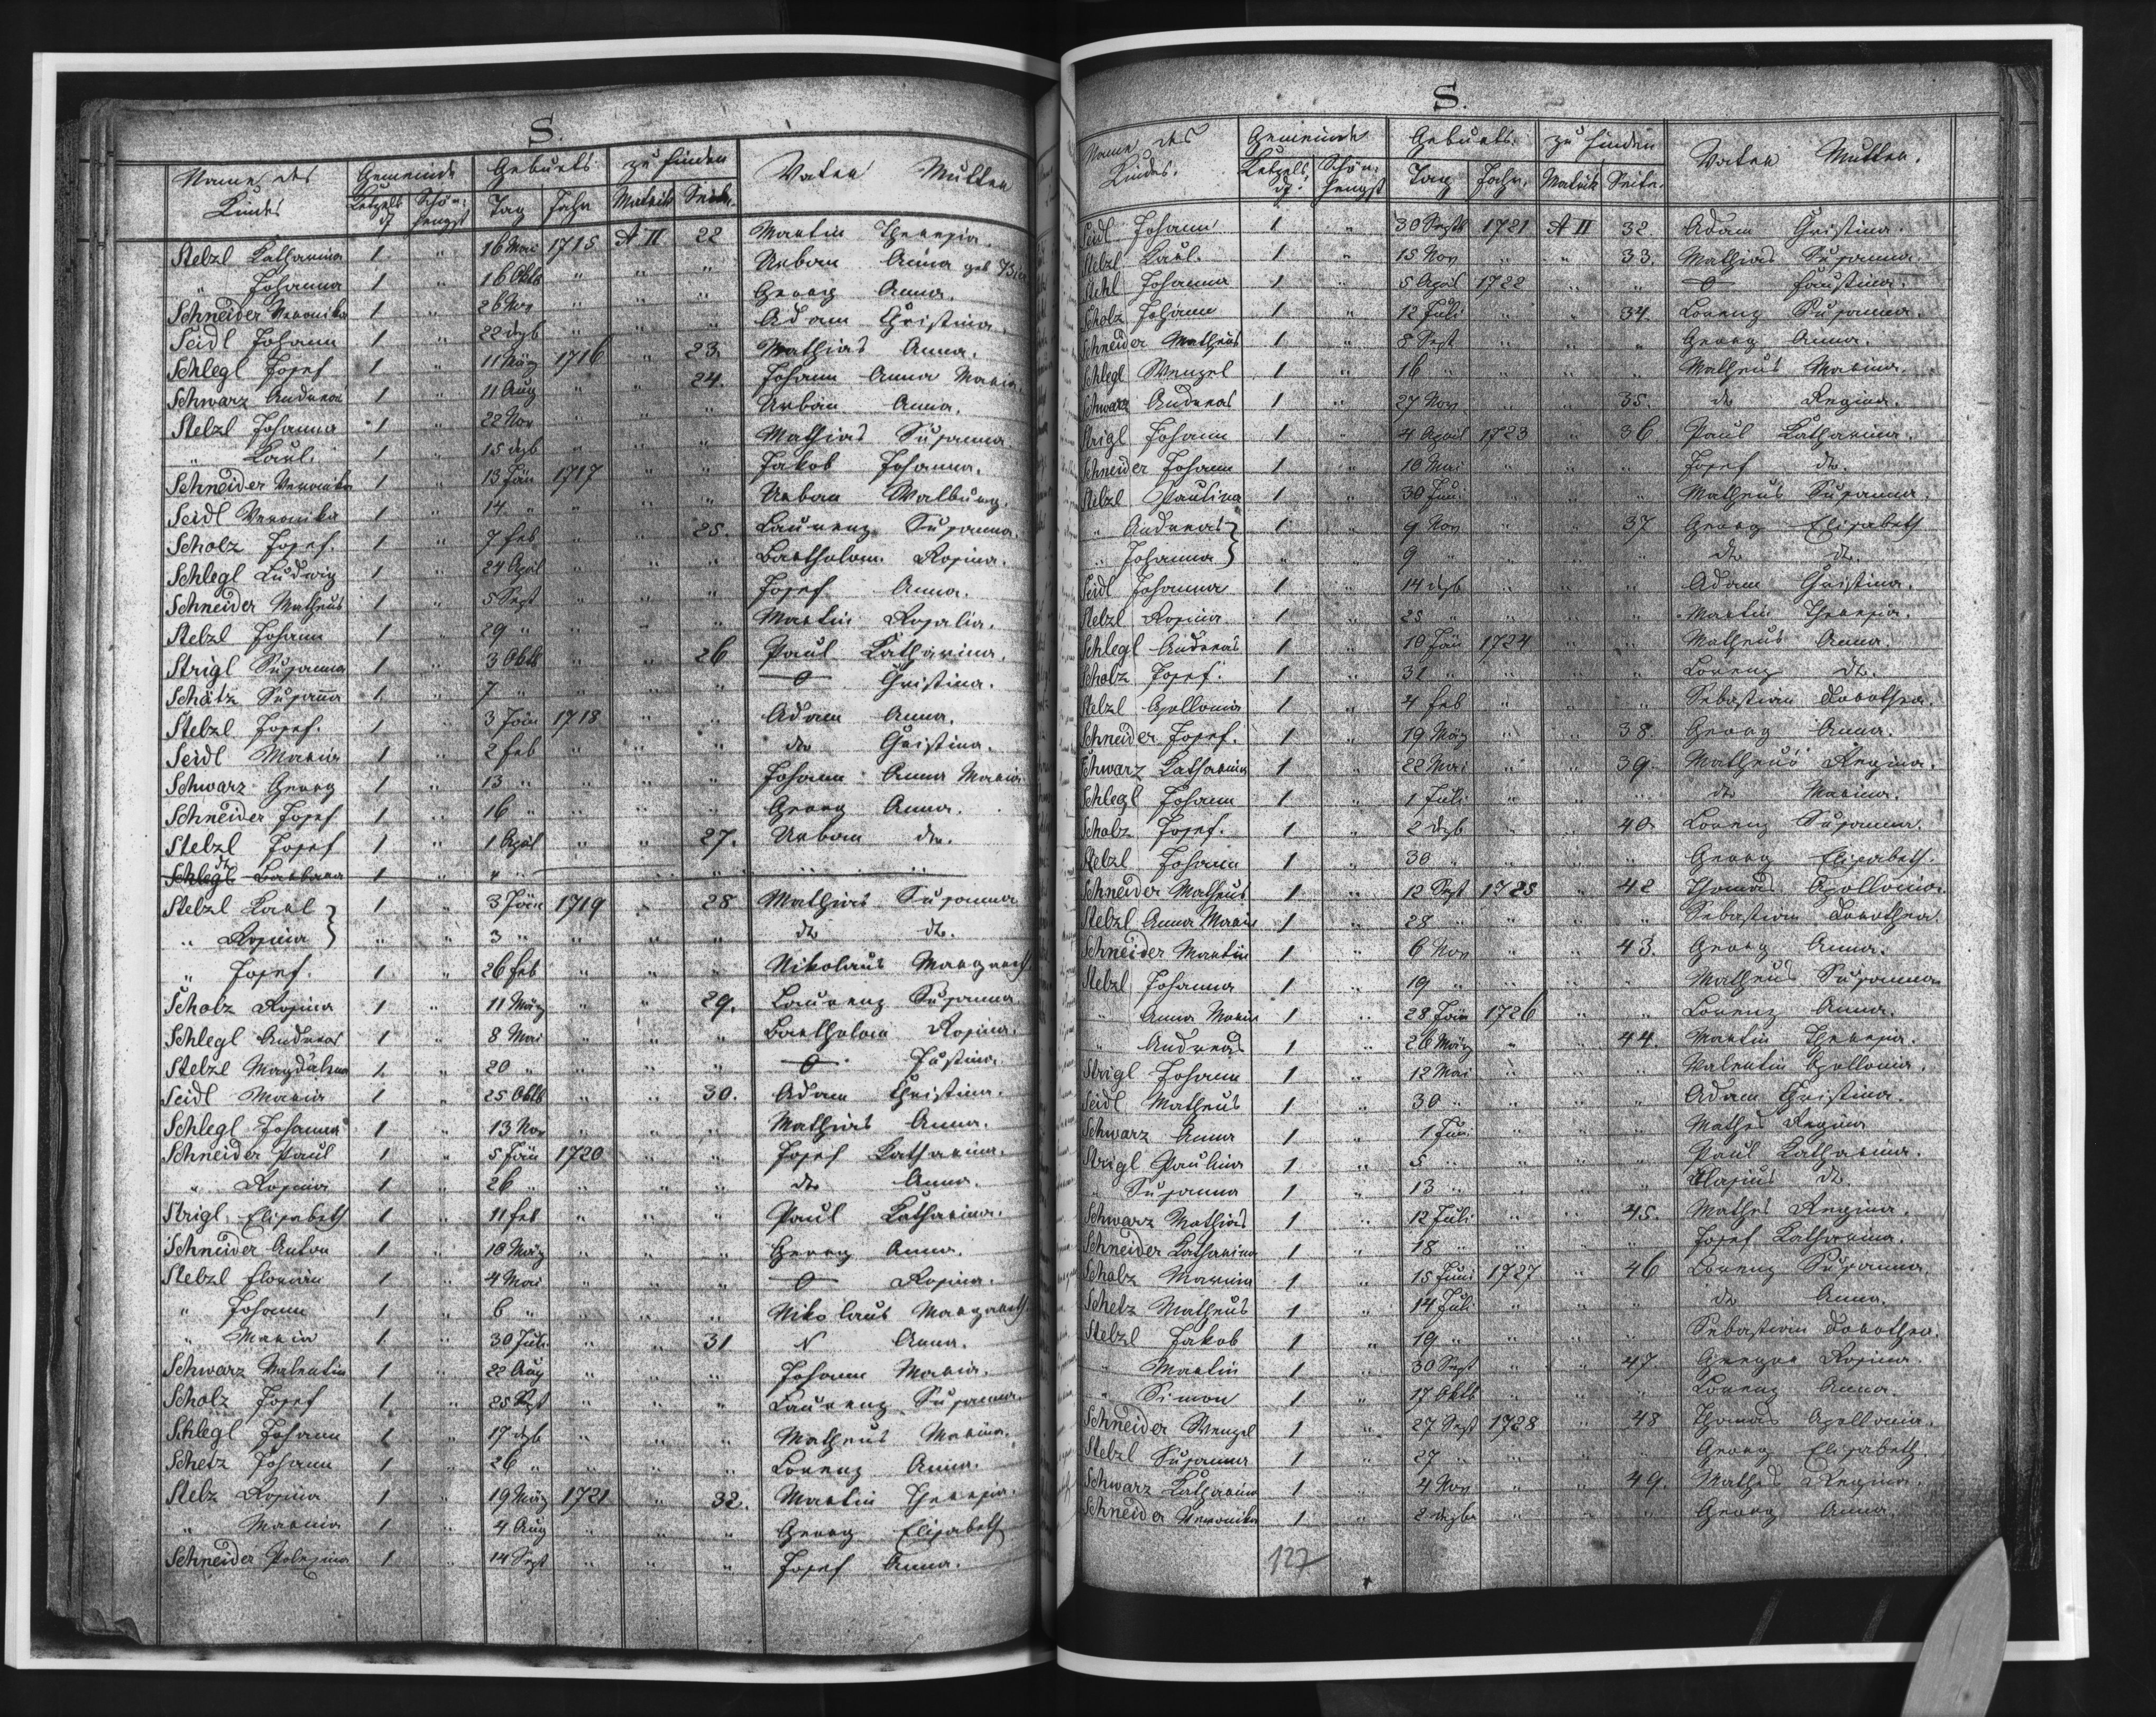 S.
Name des Kindes Gemeinde Geburts zu finden Vater Mutter
Ketzelsdf. Schönhengst Tag Jahr Matrik Seite
Stelzl Katharina 1 " 16 Mai 1715 A II 22 Martin Theresia.
" Johanna 1 " 16 Oktb " " " Urban Anna geb
Schneider Veronika 1 " 26 Nov " " " Georg Anna.
Seidl Johann 1 " 22 dezb " " " Adam Christina.
Schlegl Josef 1 " 11 März 1716 " 23. Mathias Anna.
Schwarz Andreas 1 " 11 Aug " " 24. Johann Anna Maria.
Stelzl Johanna 1 " 22 Nov " " " Urban Anna.
" Karl. 1 " 15 dezb " " " Mathias Susanna.
Schneider Veronika 1 " 13 Jän 1717 " " Jakob Johanna.
Seidl Veronika 1 " 14 " " " " Urban Walburg.
Scholz Josef. 1 " 7 feb " " 25. Laurenz Susanna.
Schlegl Ludwig 1 " 24 April " " " Bartholom Rosina.
Schneider Matheus 1 " 5 Sept " " " Josef Anna.
Stelzl Johann 1 " 29 " " " " Martin Rosalia.
Strigl Susanna 1 " 3 Oktb " " 26 Paul Katharina.
Schätz Susanna 1 " 7 " " " " O Christina.
Stelzl Josef. 1 " 3 Jän 1718 " " Adam Anna.
Seidl Maria 1 " 2 feb " " " dto Christina.
Schwarz Georg 1 " 13 " " " " Johann Anna Maria
Schneider Josef 1 " 16 " " " " Georg Anna.
Stelzl Josef 1 " 1 April " " 27. Urban dto.
Schlegl Barbara 1 " " " " " " " "
Stelzl Karl } 1 " 3 Jän 1719 " 28 Mathias Susanna
" Rosina } " " 3 " " " " dto dto.
" Josef. 1 " 26 feb " " " Nikolaus Margareth
Scholz Rosina 1 " 11 März " " 29. Laurenz Susanna
Schlegl Andreas 1 " 8 Mai " " " Bartholom Rosina.
Stelzl Magdalena 1 " 20 " " " " O Justina.
Seidl Maria 1 " 25 Oktb " " 30. Adam Christina.
Schlegl Johanna 1 " 13 Nov " " " Mathias Anna.
Schneider Paul 1 " 5 Jän 1720 " " Josef Katharina.
" Rosina 1 " 26 " " " " dto Anna.
Strigl Elisabeth 1 " 11 feb " " " Paul Katharina.
Schneider Anton 1 " 10 März " " " Georg Anna.
Stelzl Florian 1 " 4 Mai " " " O Rosina.
" Johann 1 " 6 " " " " Nikolaus Margareth.
" Maria 1 " 30 Juli " " 31 N Anna.
Schwarz Valentin 1 " 22 Aug " " " Johann Maria.
Scholz Josef 1 " 25 Sept " " " Laurenz Susanna.
Schlegl Johann 1 " 17 dezb " " " Matheus Marina.
Schetz Johann 1 " 26 " " " " Lorenz Anna.
Stelz Rosina 1 " 19 März 1721 " 32. Martin Theresia.
" Marina 1 " 4 Aug " " " Georg Elisabeth
Schneider 1 " 14 Sept " " " Josef Anna.
S.
Name des Kindes. Gemeinde Geburts. zu finden Vater Mutter.
Ketzelsdf. Schönhengst Tag Jahr. Matrik Seite.
Seidl Johann 1 " 30 Septb 1721 A II 32. Adam Christina.
Stelzl Karl. 1 " 15 Nov " " 33. Mathias Susanna.
Stehl Johanna 1 " 5 April 1722 " " O Faustina.
Scholz Johann 1 " 12 Juli " " 34. Lorenz Susanna.
Schneider Matheus 1 " 8 Sept " " " Georg Anna.
Schlegl Wenzel 1 " 16 " " " " Matheus Marina.
Schwarz Andreas 1 " 27 Nov " " 35. dto Regina.
Strigl Johann 1 " 4 April 1723 " 36 Paul Katharina.
Schneider Johann 1 " 10 Mai " " " Josef dto.
Stelzl Paulina 1 " 30 Juni " " " Matheus Susanna.
" Andreas } 1 " 9 Nov " " 37 Georg Elisabeth
" Johanna } " " 9 " " " " dto dto.
Seidl Johanna 1 " 14 dezb " " " Adam Christina.
Stelzl Rosina 1 " 25 " " " " Martin Theresia.
Schlegl Andreas 1 " 10 Jän 1724 " " Matheus Anna.
Scholz Josef. 1 " 31 " " " " Lorenz dto.
Stelzl Apollonia 1 " 4 feb " " " Sebastian Dorothea.
Schneider Josef. 1 " 19 März " " 38. Georg Anna.
Schwarz Katharina 1 " 22 Mai " " 39. Matheus Regina.
Schlegl Johann 1 " 1 Juli " " " dto Marina.
Scholz Josef. 1 " 2 dezb " " 40 Lorenz Susanna.
Stelzl Johann 1 " 30 " " " " Georg Elisabeth.
Schneider Matheus 1 " 12 Sept 1725 " 42 Thomas Apollonia.
Stelzl Anna Maria 1 " 28 " " " " Sebastian Dorothea.
Schneider Martin 1 " 6 Nov " " 43. Georg Anna.
Stelzl Johanna 1 " 19 " " " " Matheus Susanna
" Anna Maria 1 " 28 Jän 1726 " " Lorenz Anna.
" Andreas 1 " 26 März " " 44. Martin Theresia.
Strigl Johann 1 " 12 Mai " " " Valentin Apollonia.
Seidl Matheus 1 " 30 " " " " Adam Christina.
Schwarz Anna 1 " 1 Juni " " " Mathes Regina
Strigl Paulina 1 " 5 " " " " Paul Katharina.
" Susanna 1 " 13 " " " " Blasius dto.
Schwarz Mathias 1 " 12 Juli " " 45. Mathes Regina.
Schneider Katharina 1 " 18 " " " " Josef Katharina.
Scholz Marina 1 " 15 Juni 1727 " 46 Lorenz Susanna.
Schetz Matheus 1 " 14 Juli " " " dto Anna.
Stelzl Jakob 1 " 19 " " " " Sebastian Dorothea.
" Martin 1 " 30 Sept " " 47. Gregor Rosina.
" Simon 1 " 17 Oktb " " " Lorenz Anna.
Schneider Wenzel 1 " 27 Sept 1728 " 48 Thomas Apollonia.
Stelzl Susanna 1 " 27 " " " " Georg Elisabeth
Schwarz Katharina 1 " 4 Nov " " 49. Mathes Regina.
Schneider Veronika 1 " 2 dezbr " " " Georg Anna.
127